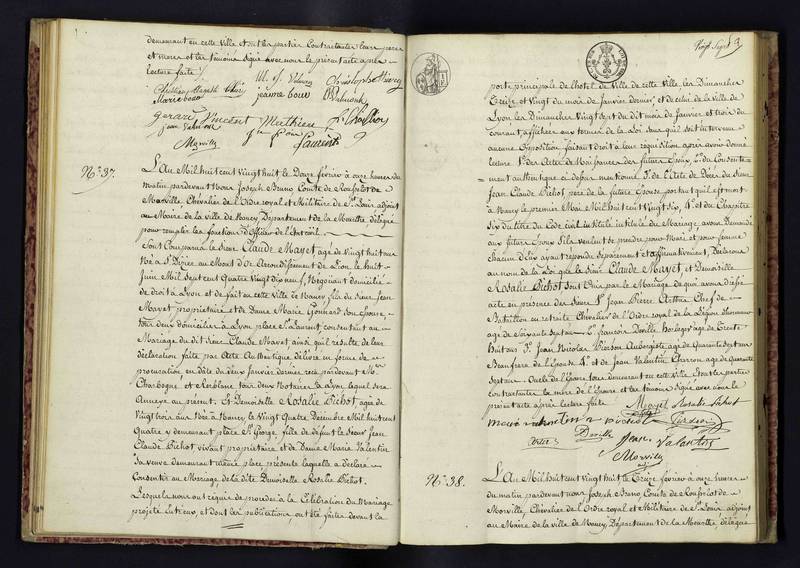 demeurant en cette Ville et ont les parties Contractantes leurs pères
et mères et les témoins signé avec nous le présent acte après
lecture faite
Marie
jeanne
Gerard Vincent Mathieu
Morville
Laurent
N.° 37.
L'An Mil huit cent Vingt huit le Douze février à onze heures du
matin pardevant Nous Joseph Bruno Comte de
Morville, Chevalier de l'Ordre royal et Militaire de S.t Louis adjoint
au Maire de la ville de Nancy Département de la Meurthe, délégué
pour remplir les fonctions d'Officier de l'Etat civil.
Sont Comparus le Sieur Claude Mayet agé de Vingt huit ans
Né à S.t Didier au Mont d'Or Arrondissement de Lion le huit
Juin Mil Sept cent Quatre Vingt dix neuf, Négociant domicilié
de droit à Lyon et de fait en cette Ville de Nancy, fils du Sieur Jean
Mayet propriétaire et de Dame Marie Gonnard son Epouse,
tous deux domiciliés à Lyon place S.t Laurent consentant au
Mariage du dit Sieur Claude Mayet ainsi qu'il résulte de leur
déclaration faite par Acte Authentique, délivré en forme de
procuration en date du janvier dernier reçu pardevant M.es
Charbogne et tous deux Notaires à Lyon lequel sera
Annexé au présent. Et Demoiselle Rosalie Pichot agée de
Vingt trois ans Née à Nancy le Vingt Quatre Décembre Mil huit cent
Quatre y demeurant place S.t George, fille de défunt le Sieur Jean
Claude Pichot vivant propriétaire et de Dame Marie Valentin
Sa veuve demeurant même place présente laquelle a déclaré
Consentir au Mariage de la dite Demoiselle Rosalie Pichot.
Lesquels nous ont requis de procéder à la Célébration du Mariage
projeté entre eux, et dont les publications ont été faites devant la
Vingt Sept
porte principale de l'hotel de Ville de cette Ville, les Dimanches
Treize et Vingt du mois de janvier dernier, et de celui de la ville de
Lyon les Dimanches Vingt sept du dit mois de Janvier et trois du
Courant, affichées aux termes de la Loi sans qu'il soit intervenu
aucune Opposition, faisant droit à leur requisition après avoir donné
lecture 1.° des Actes de Naissances des futurs Epoux, 2.° du Consente-
ment authentique ci dessus mentionné 3.° de l'Acte de Décès du Sieur
Jean Claude Pichot père de la future Epouse portant qu'il est mort
à Nancy le premier Mai Mil huit cent Vingt Six, 4.° et du Chapitre
Six du titre du Code civil intitulé du Mariage, avons Demandé
aux futurs Epoux s'ils veulent se prendre pour Mari et pour femme,
chacun d'Eux ayant répondu séparément et affirmativement, Déclarons
au nom de la Loi que le Sieur Claude Mayet, et Demoiselle
Rosalie Pichot sont Unis par le Mariage de quoi avons dressé
acte en présence des Sieurs 1.° Jean Pierre Chef de
Bataillon en retraite Chevalier de l'Ordre royal de la Légion d'honneur
agé de Soixante Sept ans 2.° François Doville Horloger agé de Trente
huit ans 3.° Jean Nicolas Pierson Aubergiste agé de Quarante Sept ans
Beaufrere de l'Epouse 4.° et de Jean Valentin Charron agé de Quarante
Sept ans Oncle de l'Epouse tous demeurant en cette Ville. Et ont les parties
contractantes la mère de l'Epouse et les témoins signé avec nous le
présent acte après lecture faite Mayet Rosalie Pichot
Pierson
Doville Jean Valentin
Morville
N.° 38.
L'An Mil huit cent Vingt huit le Treize février à onze heures
du matin, pardevant nous Joseph Bruno Comte de
Morville, Chevalier de l'Ordre royal et Militaire de S.t Louis adjoint
au Maire de la ville de Nancy, Département de la Meurthe, délégué